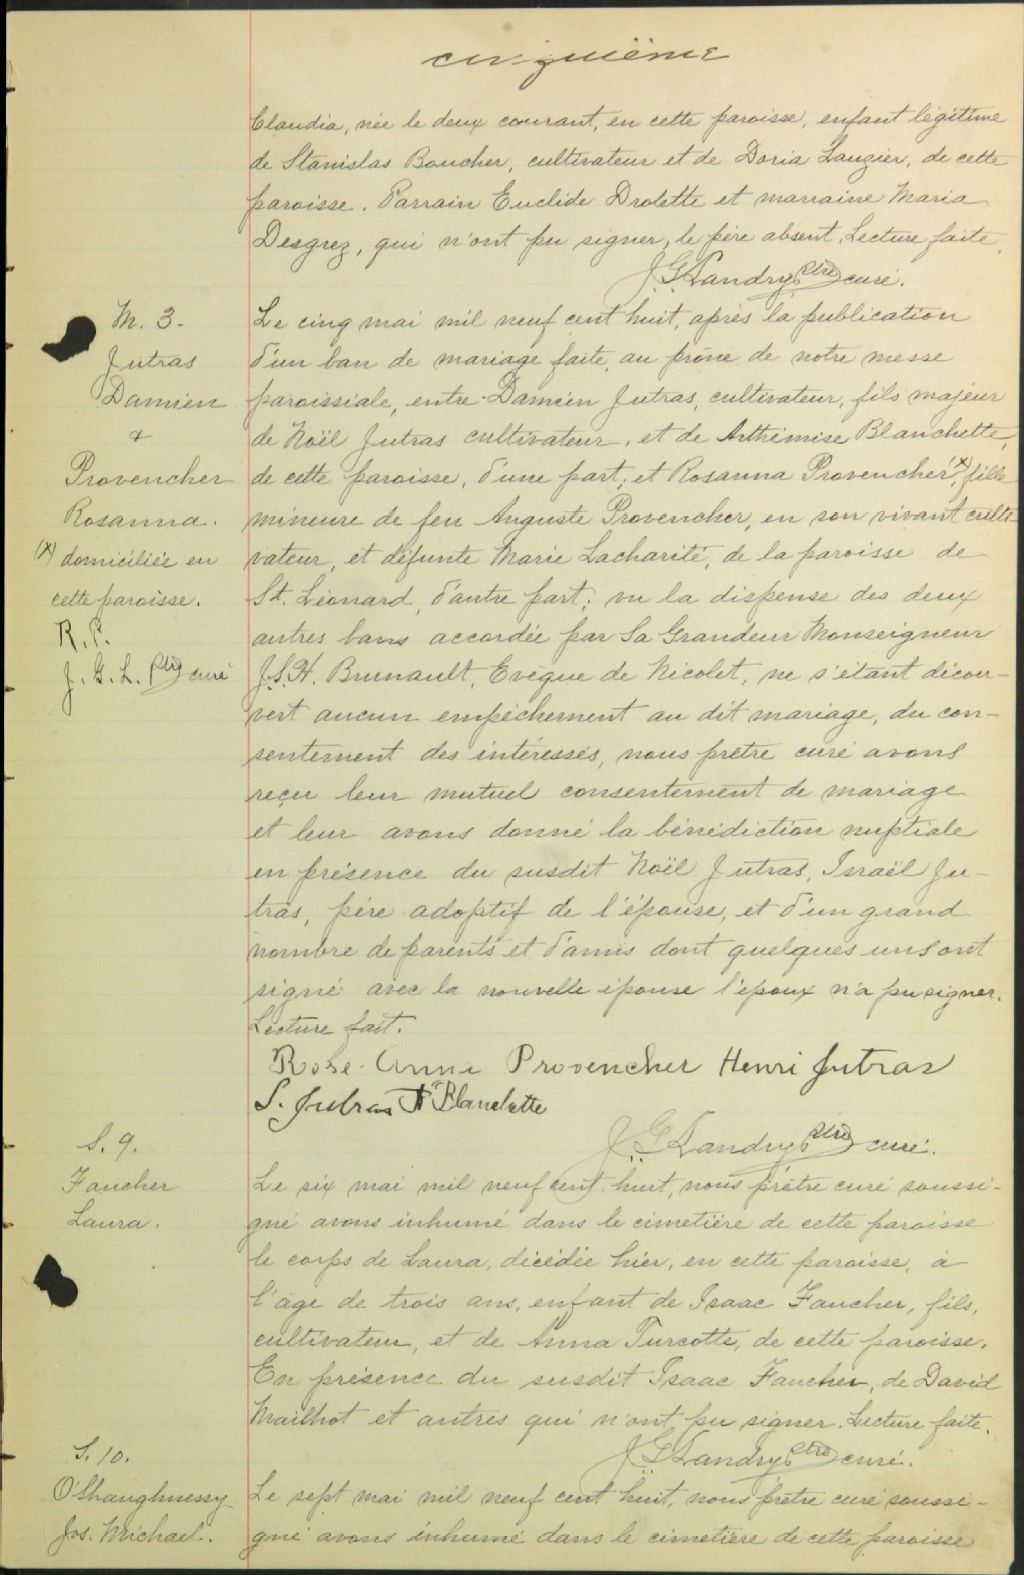 cinquième
Claudia, née le deux courant, en cette paroisse, enfant légitime
de Stanislas Boucher, cultivateur et de Doria Lauzier, de cette
paroisse. Parrain Euclide Drolette et marraine Maria
Desgrez, qui n'ont pu signer, le père absent. Lecture faite
J. G. Landry, ptre curé.
M. 3.
Jutras
Damien
&
Provencher
Rosanna.
(x) domiciliée en
cette paroisse.
R. P.
J. G. L. ptre curé
Le cinq mai mil neuf cent huit, après la publication
d'un ban de mariage faite, au prône de notre messe
paroissiale, entre Damien Jutras, cultivateur, fils majeur
de Noël Jutras cultivateur, et de Arthémise Blanchette,
de cette paroisse, d'une part; et Rosanna Provencher (x), fille
mineure de feu Auguste Provencher, en son vivant culti-
vateur, et défunte Marie Lacharité, de la paroisse de
St. Léonard, d'autre part; vu la dispense des deux
autres bans accordée par Sa Grandeur Monseigneur
J. S. H. Brunault, Evêque de Nicolet, ne s'étant décou-
vert aucun empêchement au dit mariage, du con-
sentement des intéressés, nous prêtre curé avons
reçu leur mutuel consentement de mariage
et leur avons donné la bénédiction nuptiale
en présence du susdit Noël Jutras, Israël Ju-
tras, père adoptif de l'épouse, et d'un grand
nombre de parents et d'amis dont quelques uns ont
signé avec la nouvelle épouse l'époux n'a pu signer.
Lecture fait.
Rose-Anna Provencher Henri Jutras
S. Jutras A Blanchette
J. G. Landry, ptre curé.
S. 9.
Faucher
Laura.
Le six mai mil neuf cent huit, nous prêtre curé soussi-
gné avons inhumé dans le cimetière de cette paroisse
le corps de Laura, décédée hier, en cette paroisse, à
l'âge de trois ans, enfant de Isaac Faucher, fils,
cultivateur, et de Anna Turcotte, de cette paroisse.
En présence du susdit Isaac Faucher, de David
Mailhot et autres qui n'ont pu signer. Lecture faite.
J. G. Landry, ptre curé.
S. 10.
O'Shaughnessy
Jos. Michael.
Le sept mai mil neuf cent huit, nous prêtre curé soussi-
gné avons inhumé dans le cimetière de cette paroisse